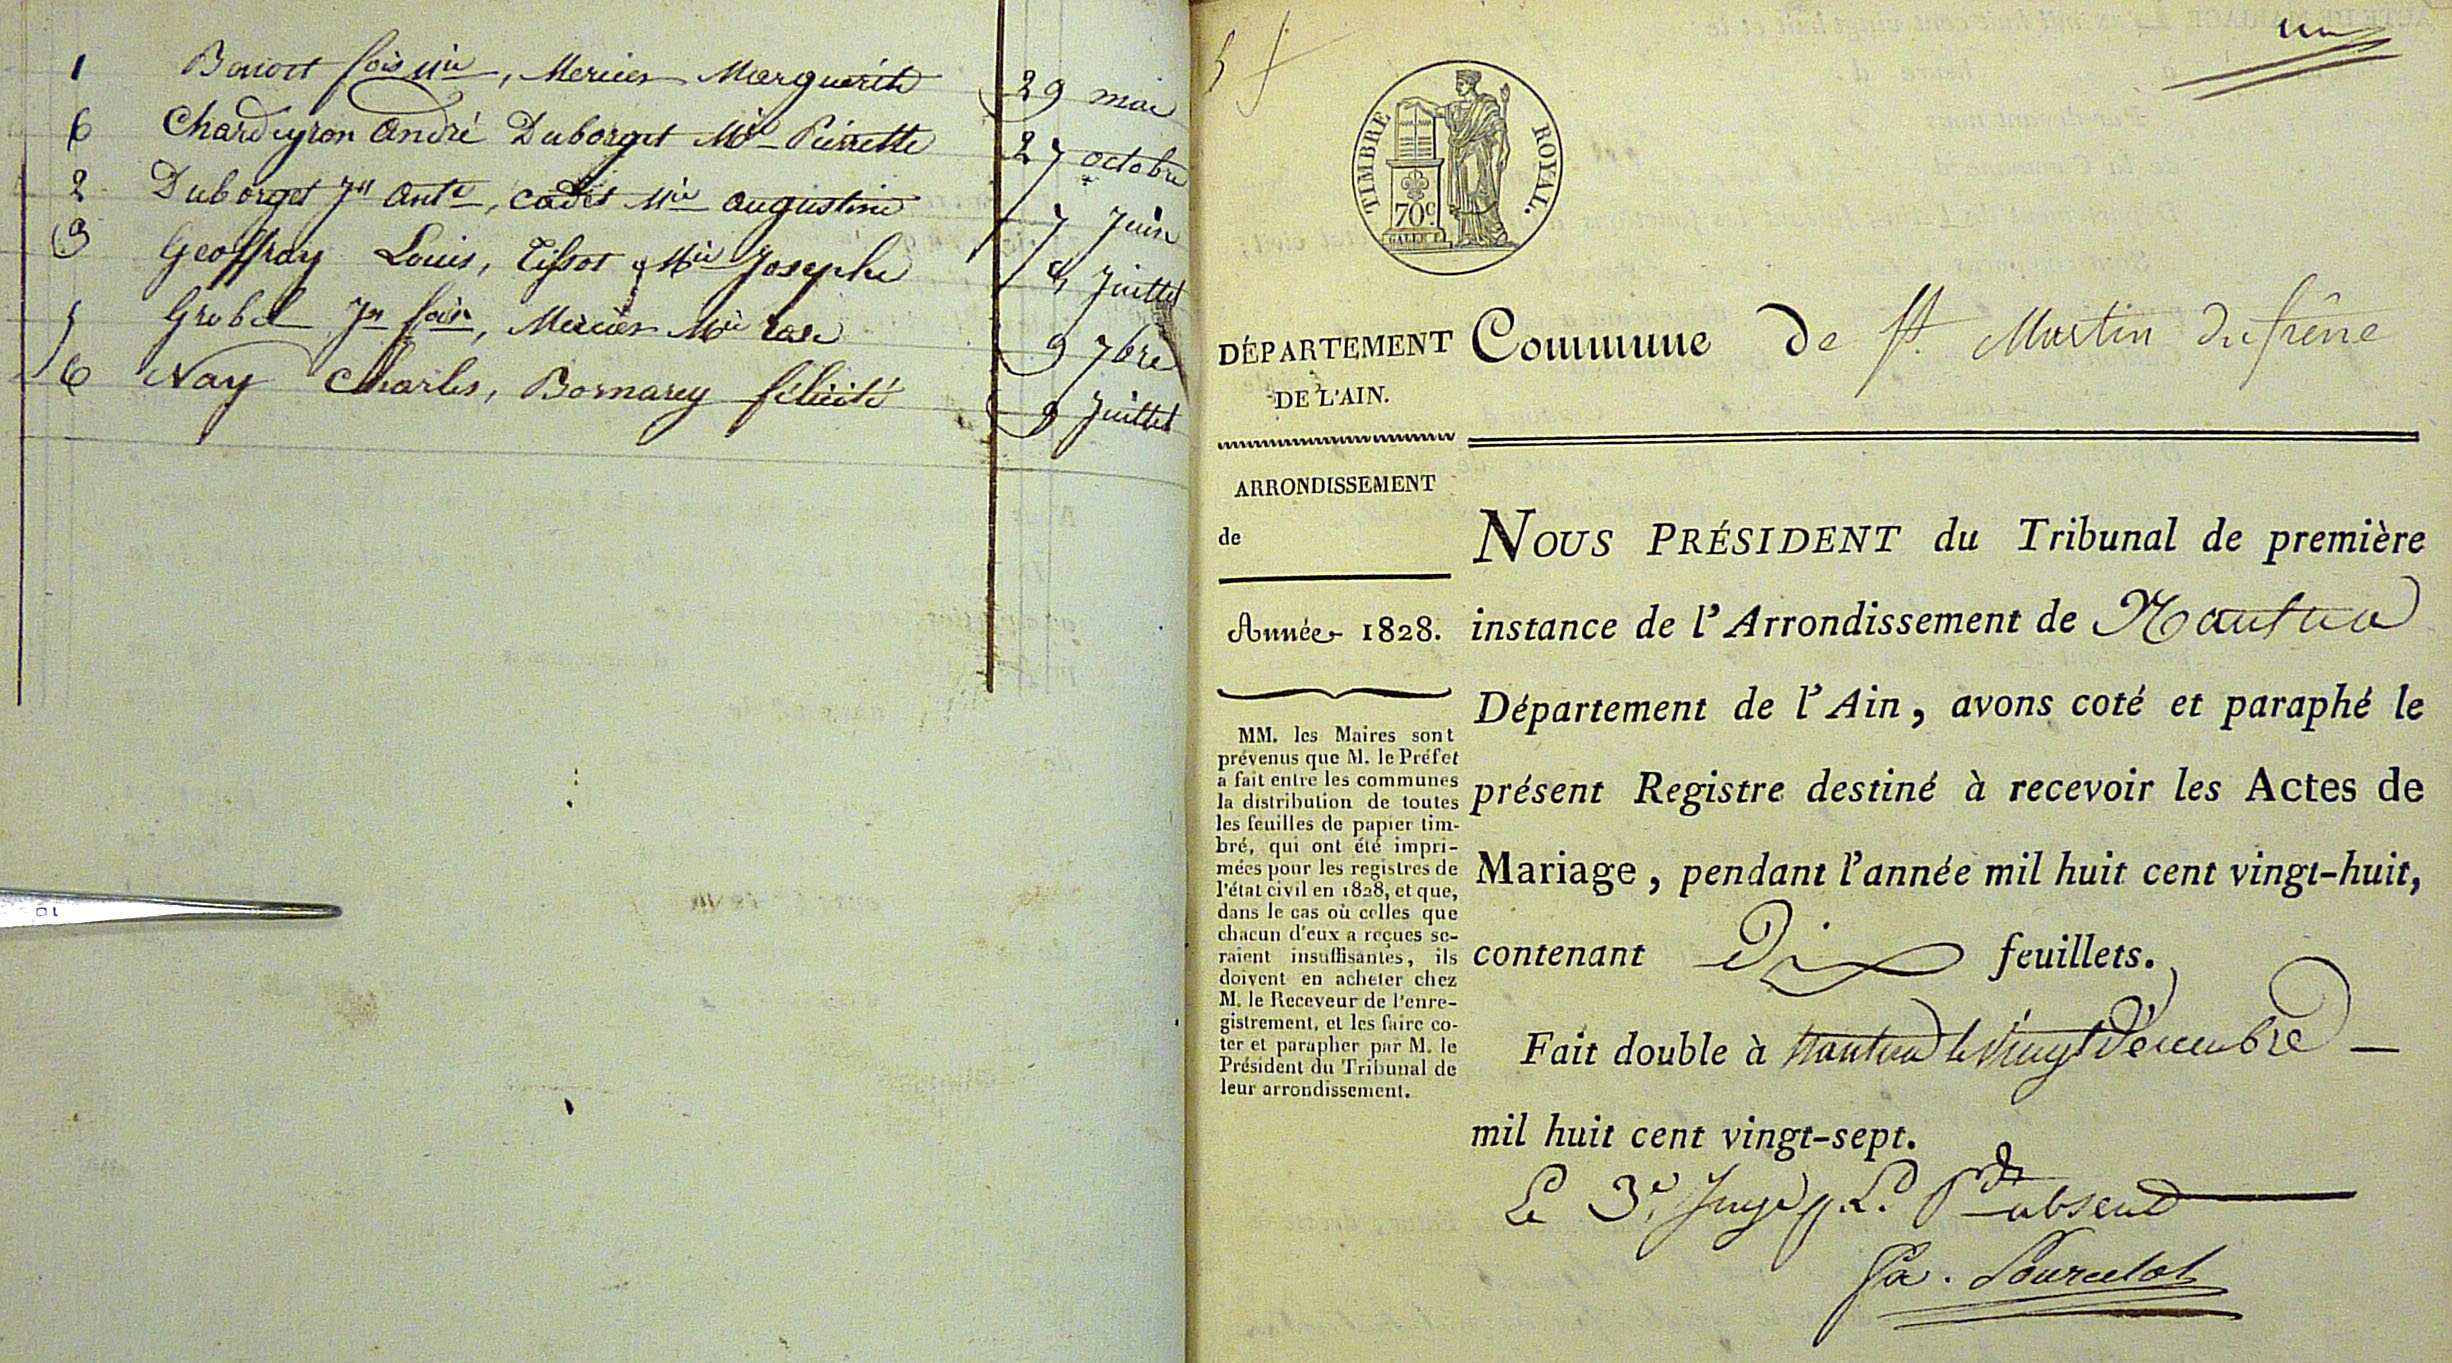 1 Benoit fois Mie, Mercier Marguerite 29 mai
6 Chardeyron André Duborget Mie Pierrette 27 octobre
2 Duborget Jn Ante, Cadet Mie augustine 7 Juin
3 Geoffray Louis, Tissot Mie Josephe 4 Juillet
5 Grobel Jn fois, Mercier Mie rose 9 7bre
6 Nay Charles, Bornarey félicité 9 Juillet
un
TIMBRE ROYAL.
70c
DÉPARTEMENT
DE L'AIN.
Commune de St. Martin du frêne
ARRONDISSEMENT
de
Année 1828.
MM. les Maires sont
prévenus que M. le Préfet
a fait entre les communes
la distribution de toutes
les feuilles de papier tim-
bré, qui ont été impri-
mées pour les registres de
l'état civil en 1828, et que,
dans le cas où celles que
chacun d'eux a reçues se-
raient insuffisantes, ils
doivent en acheter chez
M. le Receveur de l'enre-
gistrement, et les faire co-
ter et parapher par M. le
Président du Tribunal de
leur arrondissement.
NOUS PRÉSIDENT du Tribunal de première
instance de l'Arrondissement de Nantua
Département de l'Ain, avons coté et paraphé le
présent Registre destiné à recevoir les Actes de
Mariage, pendant l'année mil huit cent vingt-huit,
contenant Dix feuillets.
Fait double à Nantua le Vingt Décembre
mil huit cent vingt-sept.
Le 3e. Juge Le Pdt absent
10